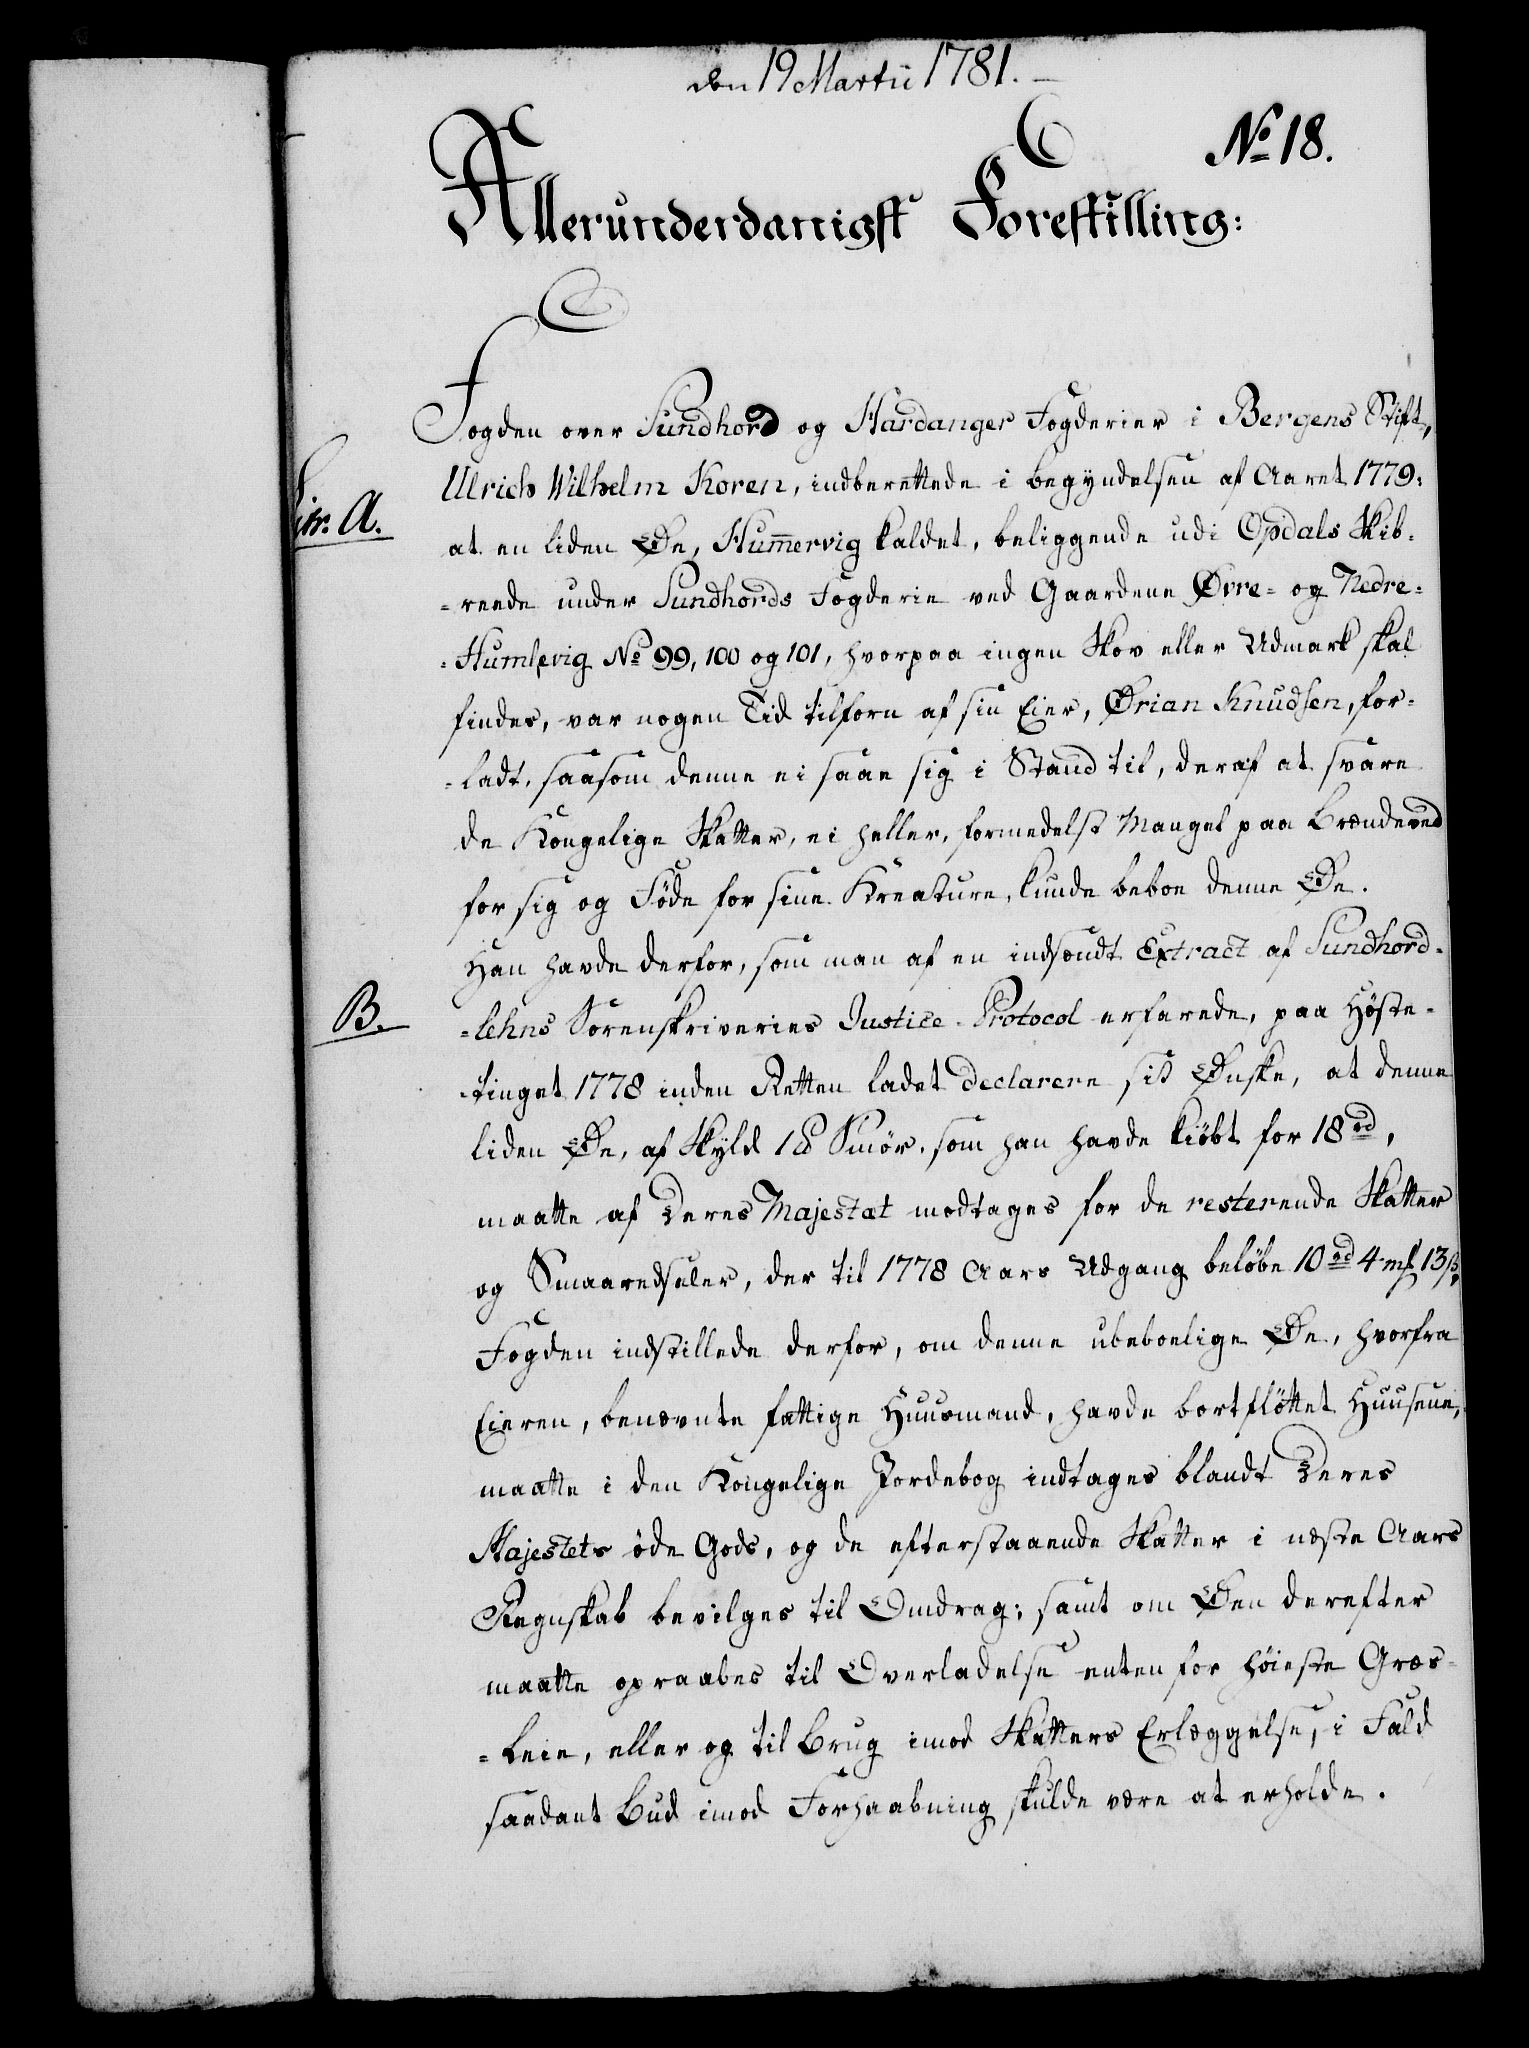 den 19 Martii 1781.
No 18.
Allerunderdanigst Forestilling:
Fogden over Sundhord og Hardanger Fogderier i Bergens Stift,
Ulrich Wilhelm Koren, indberettede i begyndelsen af Aaret 1779:
Litr. A.
at en liden Øe, Hum̄ervig kaldet, beliggende udi Opdals Skib-
-reede under Sundhords Fogderie ved Gaardene Øvre- og Nedre-
-Humlevig No 99, 100 og 101, hvorpaa ingen Skov eller Udmark skal
findes, var nogen Tid tilforn af sin Eier, Ørian Knudsen, for-
-ladt, saasom denne ei saae sig i Stand til, deraf at svare
de Kongelige Skatter, ei heller, formedelst Mangel paa Brændeved
for sig og Föde for sine Kreature, kunde beboe denne Øe.
Han havde derfor, som man af en indsendt Extract af Sundhord-
B.
-lehns Sorenskriveries Justice-Protocol erfarede, paa Höste-
-tinget 1778 inden Retten ladet declarere sit Ønske, at denne
liden Øe, af Skyld 1 ℔ Smör, som han havde kiöbt for 18 rd,
maatte af Deres Majestæt modtages for de resterende Skatter
og Smaaredseler, der til 1778 Aars Udgang belöbe 10 rd 4 mk 13 ß,
Fogden indstillede derfor, om denne ubeboelige Øe, hvorfra
Eieren, benævnte fattige Huusmand, havde bortflöttet Huusene,
maatte i den Kongelige Jordebog indtages blandt Deres
Majestets öde Gods, og de efterstaaende Skatter i næste Aars
Regnskab bevilges til Omdrag; samt om Øen derefter
maatte opraabes til Overladelse enten for höieste Græs-
-Leie, eller og til Brug imod Skatters Erlæggelse, i Fald
saadant Bud imod Forhaabning skulde være at erholde.